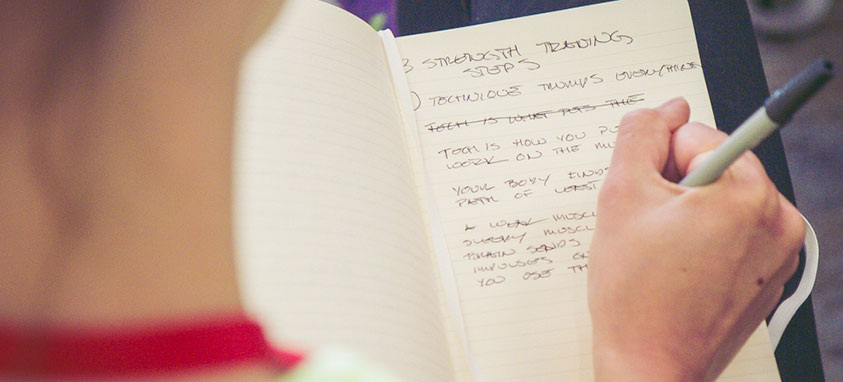 3 STRENGTH TRAINING
STEPS
) TECHNIQUE TRUMPS EVERYTHING
TECH IS WHAT PUTS THE
TECH IS HOW YOU PU
WORK ON THE MU
YOUR BODY FINDS
PATH OF LEAST
A WEAK MUSC
SLEEPY MUSCL
BRAIN SENDS
IMPULSES ON
YOU USE TH